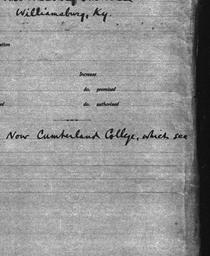 Williamsburg, Ky.
Increase
do. promised
do. authorised
Now Cumberland College, which see